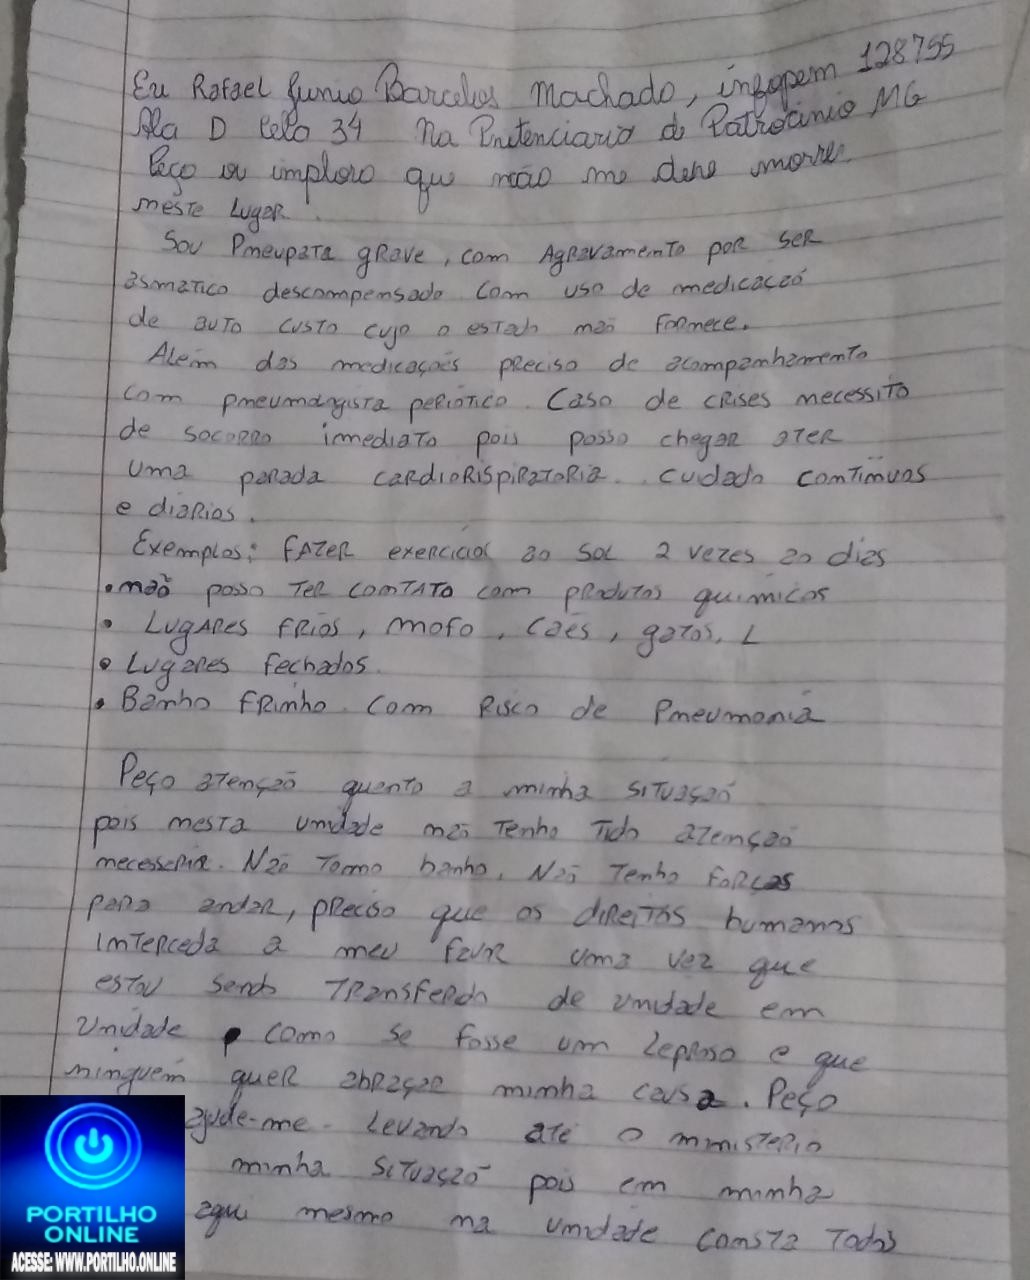 Eu Rafael Junio Barcelos Machado, infopem 128755
Ala D Cela 34 Na Penitenciaria de Patrocinio MG
Peço ou imploro que não me dexe morrer
neste Lugar.
Sou Pneupata grave, com Agravamento por ser
asmatico descompensado com uso de medicaçaõ
de auto custo cujo o estado não fornece.
Além das medicações preciso de acompanhamento
com pneumologista periotico. Caso de crises necessito
de socorro imediato pois posso chegar ater
uma parada cardiorispiratoria. cuidado continuos
e diarios.
Exemplos: FAZER exercicios ao sol 2 vezes ao dias
• não posso ter contato com produtos quimicos
• Lugares frios, mofo, cães, gatos, L
• Lugares fechados.
• Banho frinho com risco de Pneumonia
Peço atenção quanto a minha situaçaõ
pois nesta unidade não tenho tido atençaõ
necesseria. Não tomo banho, Não tenho forças
para andar, preciso que os direitos humanos
interceda a meu favor uma vez que
estou sendo transferdo de unidade em
unidade como se fosse um leproso e que
ninguém quer abraçar minha causa. Peço
ajude-me. Levando até o ministerio
minha situaçaõ pois em minha
aqui mesmo na unidade consta todos
PORTILHO
ONLINE
ACESSE: WWW.PORTILHO.ONLINE